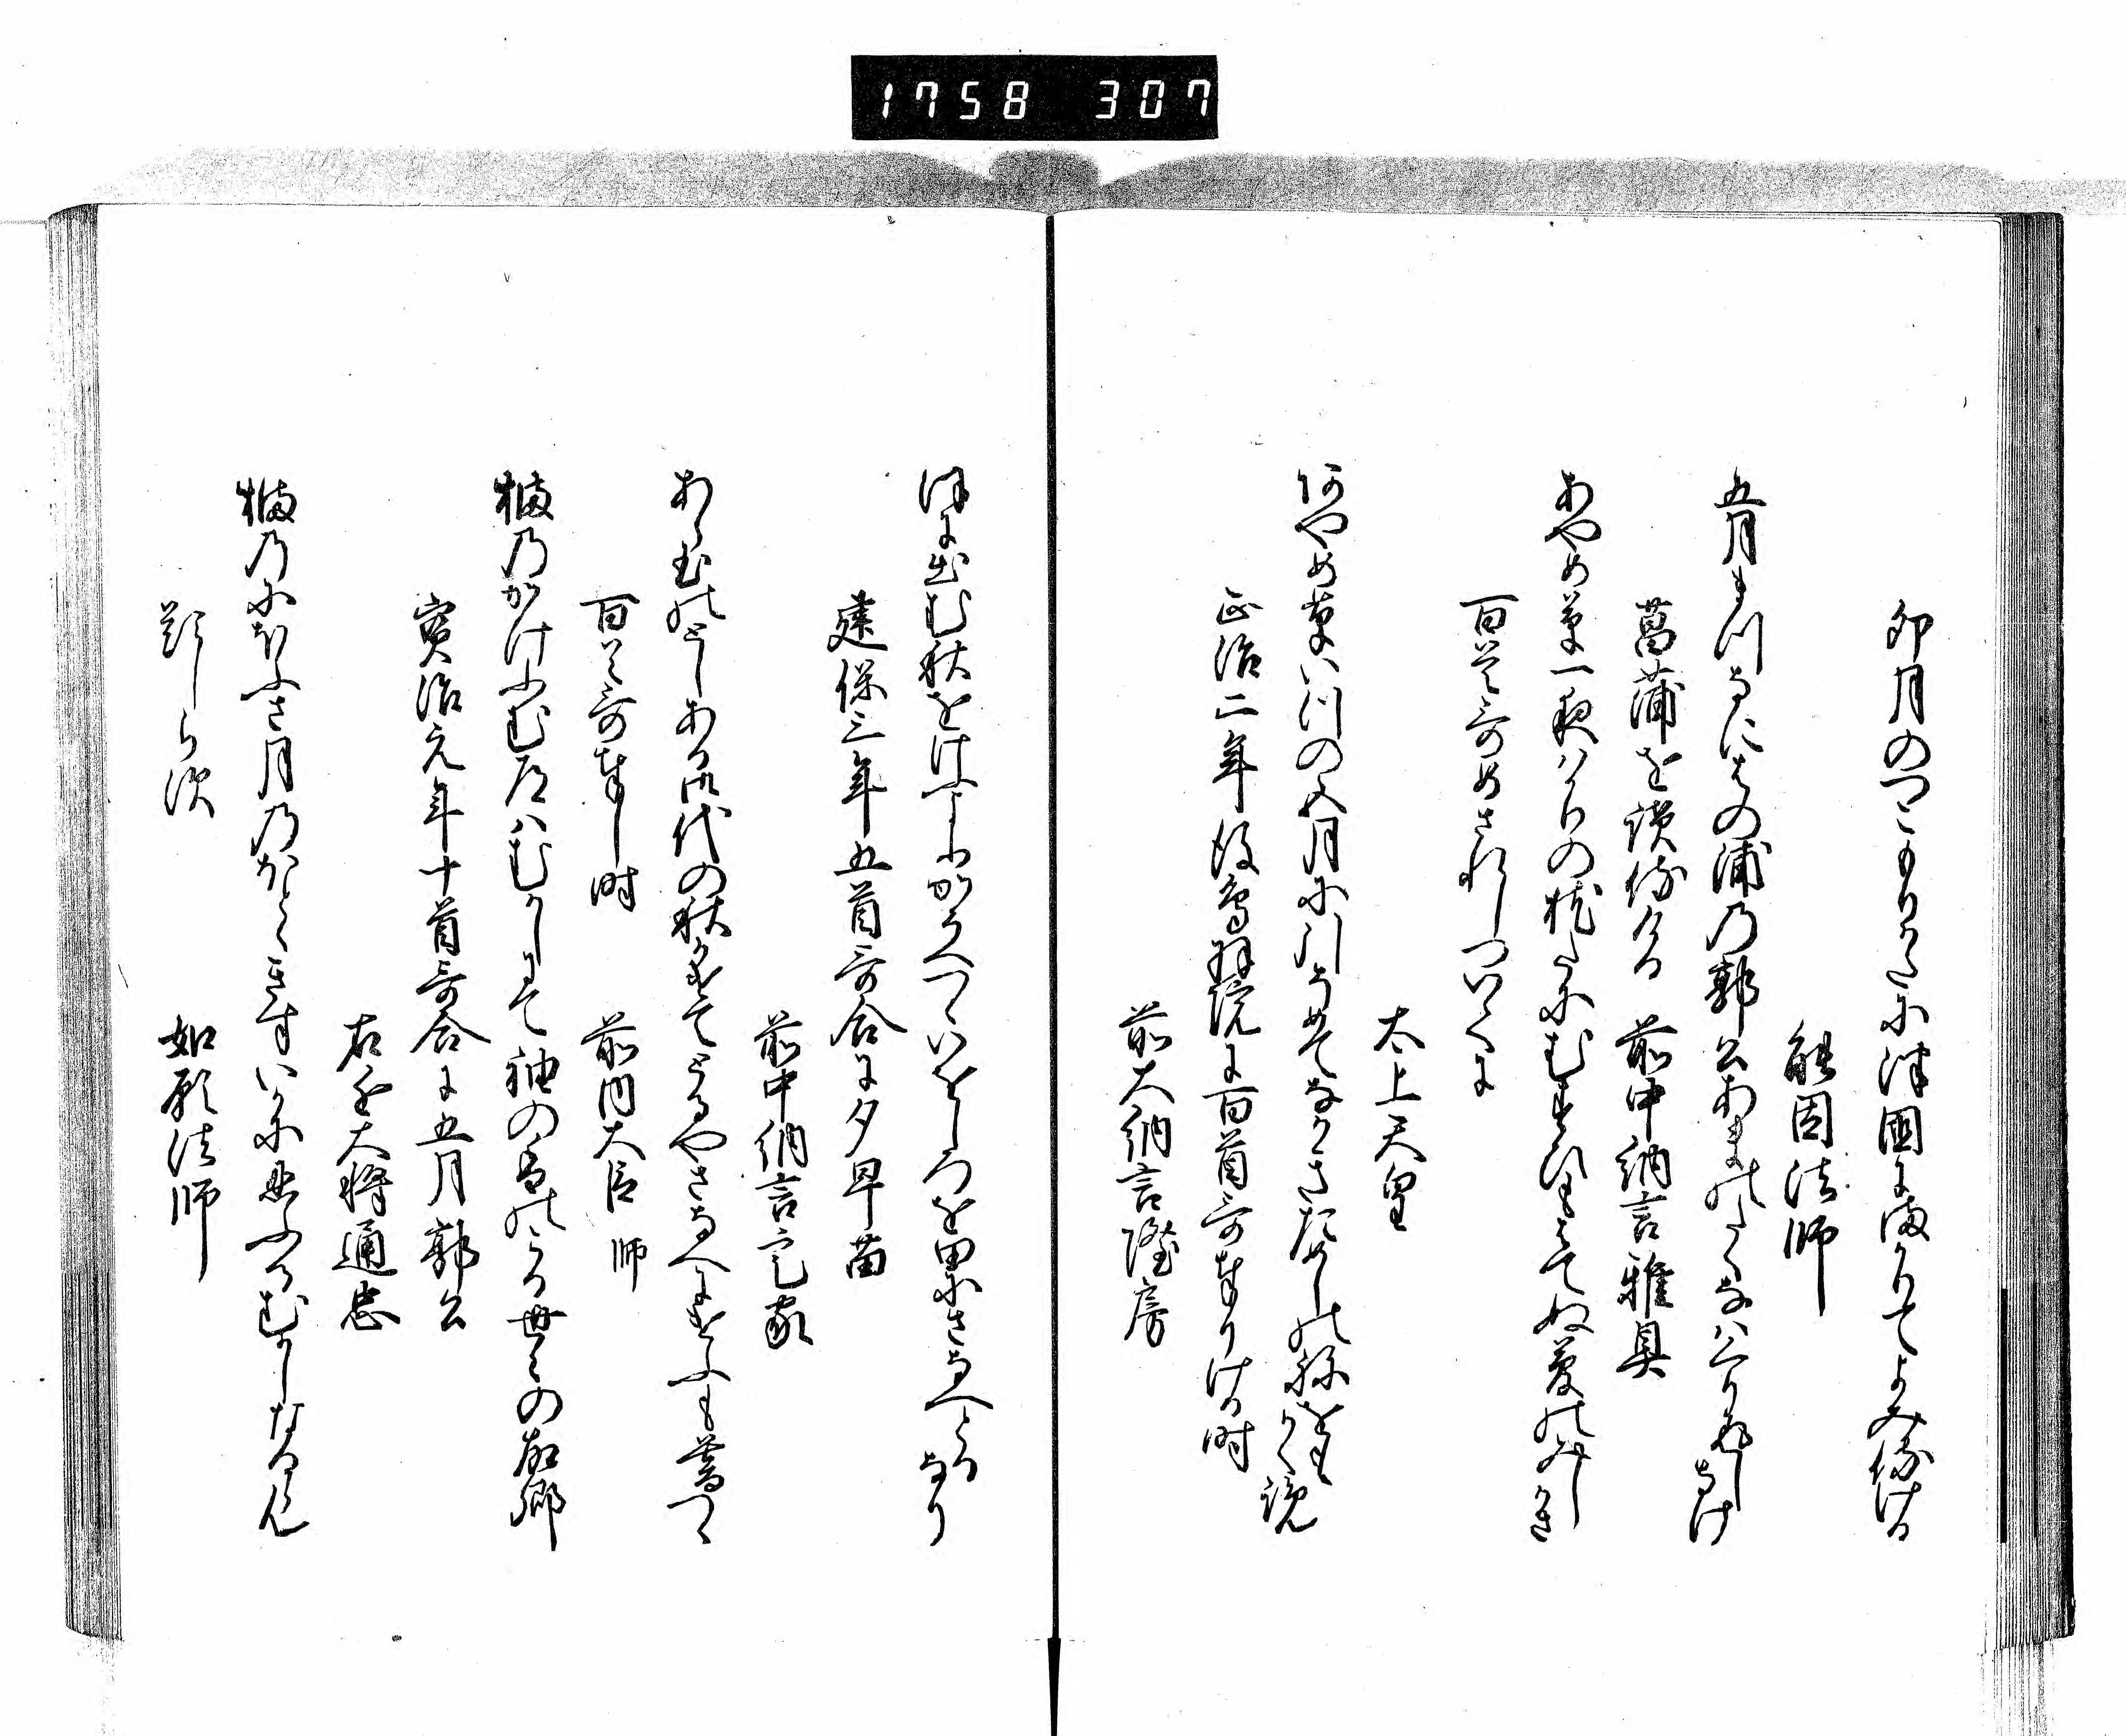 1758 307
卯月のつこもりかたに津國にまかりてよみ侍ける
能因法師
五月まつなにはの浦乃郭公あまのたくなはくり返しなけ
菖蒲を讀侍ける 前中納言雅具
あやめ草一夜はかりの枕たにむすひもはてぬ夢のみしかき
百首哥めされしついてに
太上天皇
あやめ草いつの五月に引そめてなかきためしのねをもかく覧
正治二年後鳥羽院に百首哥奉りける時
前大納言隆房
ほに出む秋をけふよりかそへつゝいをしろを田にさなへとるなり
建保三年五首哥合に夕早苗
前中納言定家
あらたまのとしある御代の秋かけてとるやさなへにけふも暮つゝ
百首哥奉し時 前内大臣 師
橘乃かけふむ道はむかしにて袖の香のこる世々の故郷
寳治元年十首哥合に五月郭公
右近大将通忠
橘乃にほふさ月乃ほとゝきすいかに忍ふるむかしなるらん
題しらす 如願法師